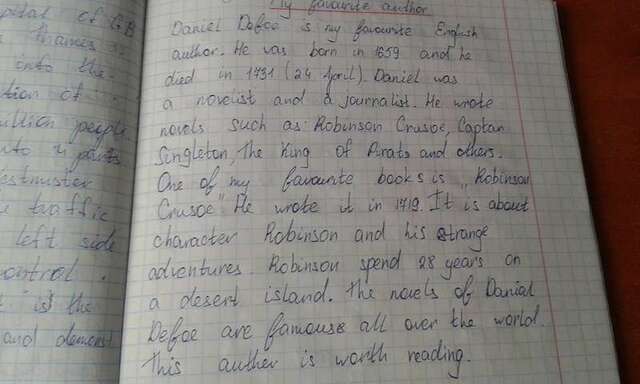 My favourite author
Daniel Defoe is my favourite English
author. He was born in 1659 and he
died in 1731 (24 April). Daniel was
a novelist and a journalist. He wrote
novels such as: Robinson Crusoe, Captan
Singleton, The King of Pirats and others.
One of my favourite books is "Robinson
Crusoe". He wrote it in 1719. It is about
character Robinson and his strange
adventures. Robinson spend 28 years on
a desert island. The novels of Daniel
Defoe are famouse all over the world.
This auther is worth reading.
of GB
into the
million people
into 2 parts
traffic
left side
control.
is the
and